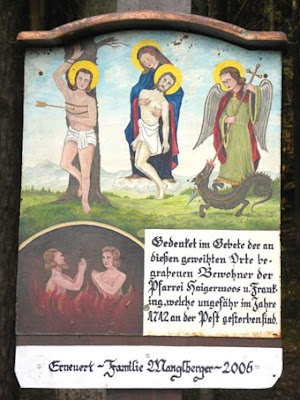 Gedenket im Gebete der an
dießen geweihten Orte be-
grabenen Bewohner der
Pfarrei Haigermoos u. Frank-
ing, welche ungefähr im Jahre
1742 an der Pest gestorben sind.
Erneuert ~ Familie Manglberger ~ 2006